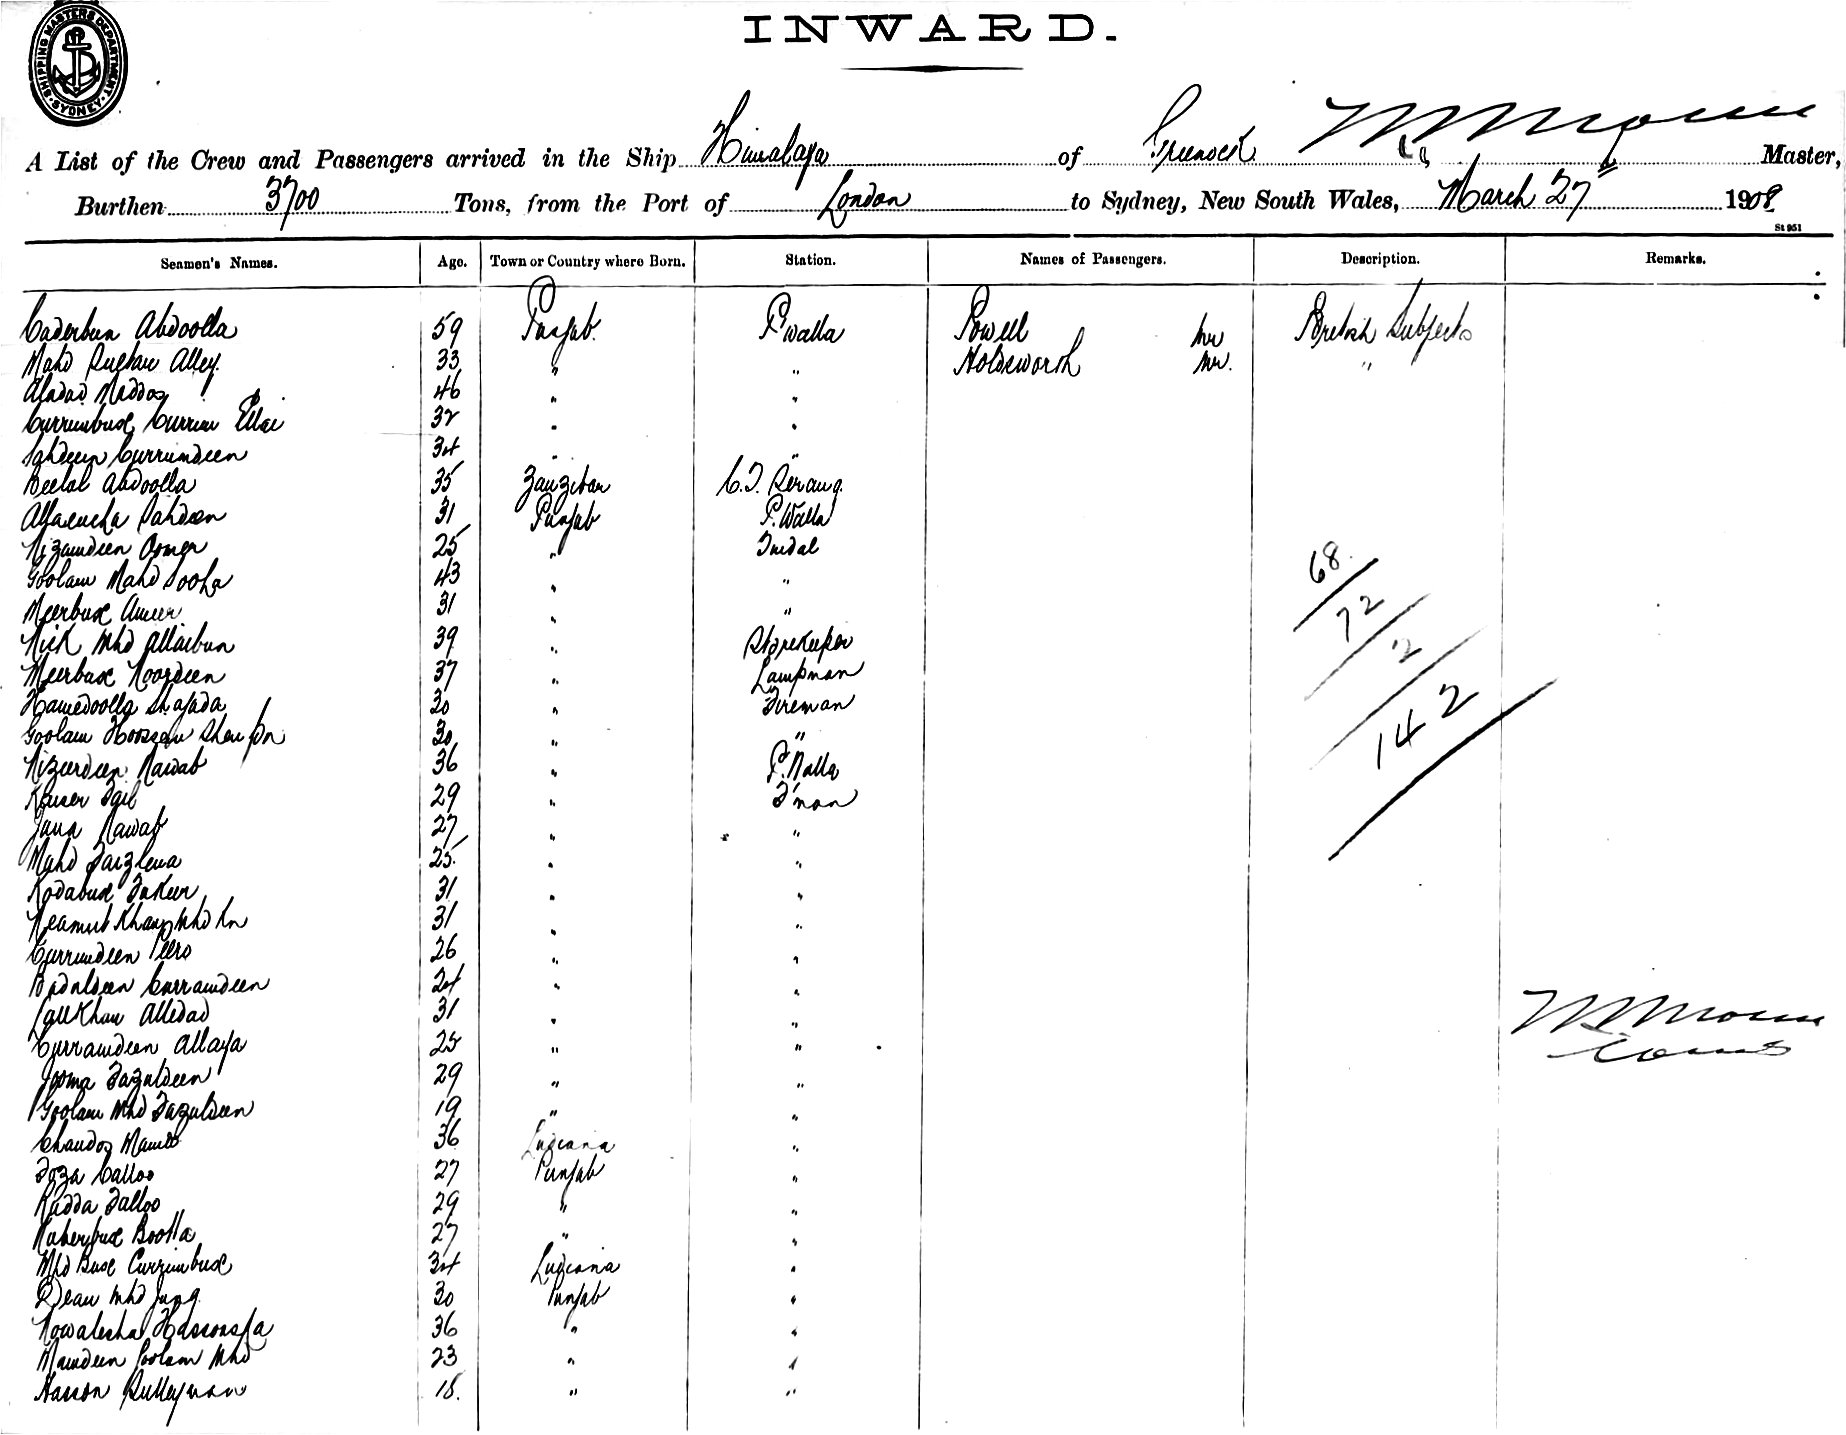 SHIPPING MASTERS DEPARTMENT SYDNEY
INWARD.
A List of the Crew and Passengers arrived in the Ship Himalaya of Greenock Master,
Burthen 3700 Tons, from the Port of London to Sydney, New South Wales, March 27th 1908
St 951
Seamen's Names. Age. Town or Country where Born. Station. Names of Passengers. Description. Remarks.
Caderbux Abdoolla 59 Punjab. P walla Powell Mr British Subjects
Mahd Alley. 33 " " Holdsworth Mr. "
46 " "
Currimbux Currim Ellai 32 " "
Sahdeen Currumdeen 34 " "
Beelal Abdoolla 35 Zanzibar C.T. Serang.
Sahdeen 31 Punjab P. Walla
Nizamdeen Oomer 25 " Tindal
Goolam Mahd Sooha 43 " "
Meerbux Ameer 31 " "
Mhd Allaibux 39 " Storekeeper
Meerbux Noordeen 37 " Lampman
Hamedoolla Shajada 30 " Fireman
Goolam Hoosean 30 " "
Nizerdeen Nawab 36 " P. Walla
29 " F'man
Nawab 27 " "
Mahd 25. " "
Kodabux Fakeer 31 " "
Neamut Khan Mhd Kn 31 " "
Currumdeen Peero 26 " "
Badaldeen Curramdeen 24 " "
Lall Khan Alledad 31 " "
Curramdeen Allaya 25 " "
Jooma Fazuldeen 29 " "
Goolam Mhd Fazuldeen 19 " "
36 Ludeana "
Foza Calloo 27 Punjab "
Radda Falloo 29 " "
Bootta 27 " "
Mhd Bux Currimbux 34 Ludeana "
Dean Mhd Jung 30 Punjab "
Nowalesha Hassonsha 36 " "
Mamdeen Goolam Mhd 23 " "
Hasson Sulleyman 18. " "
68
72
2
142